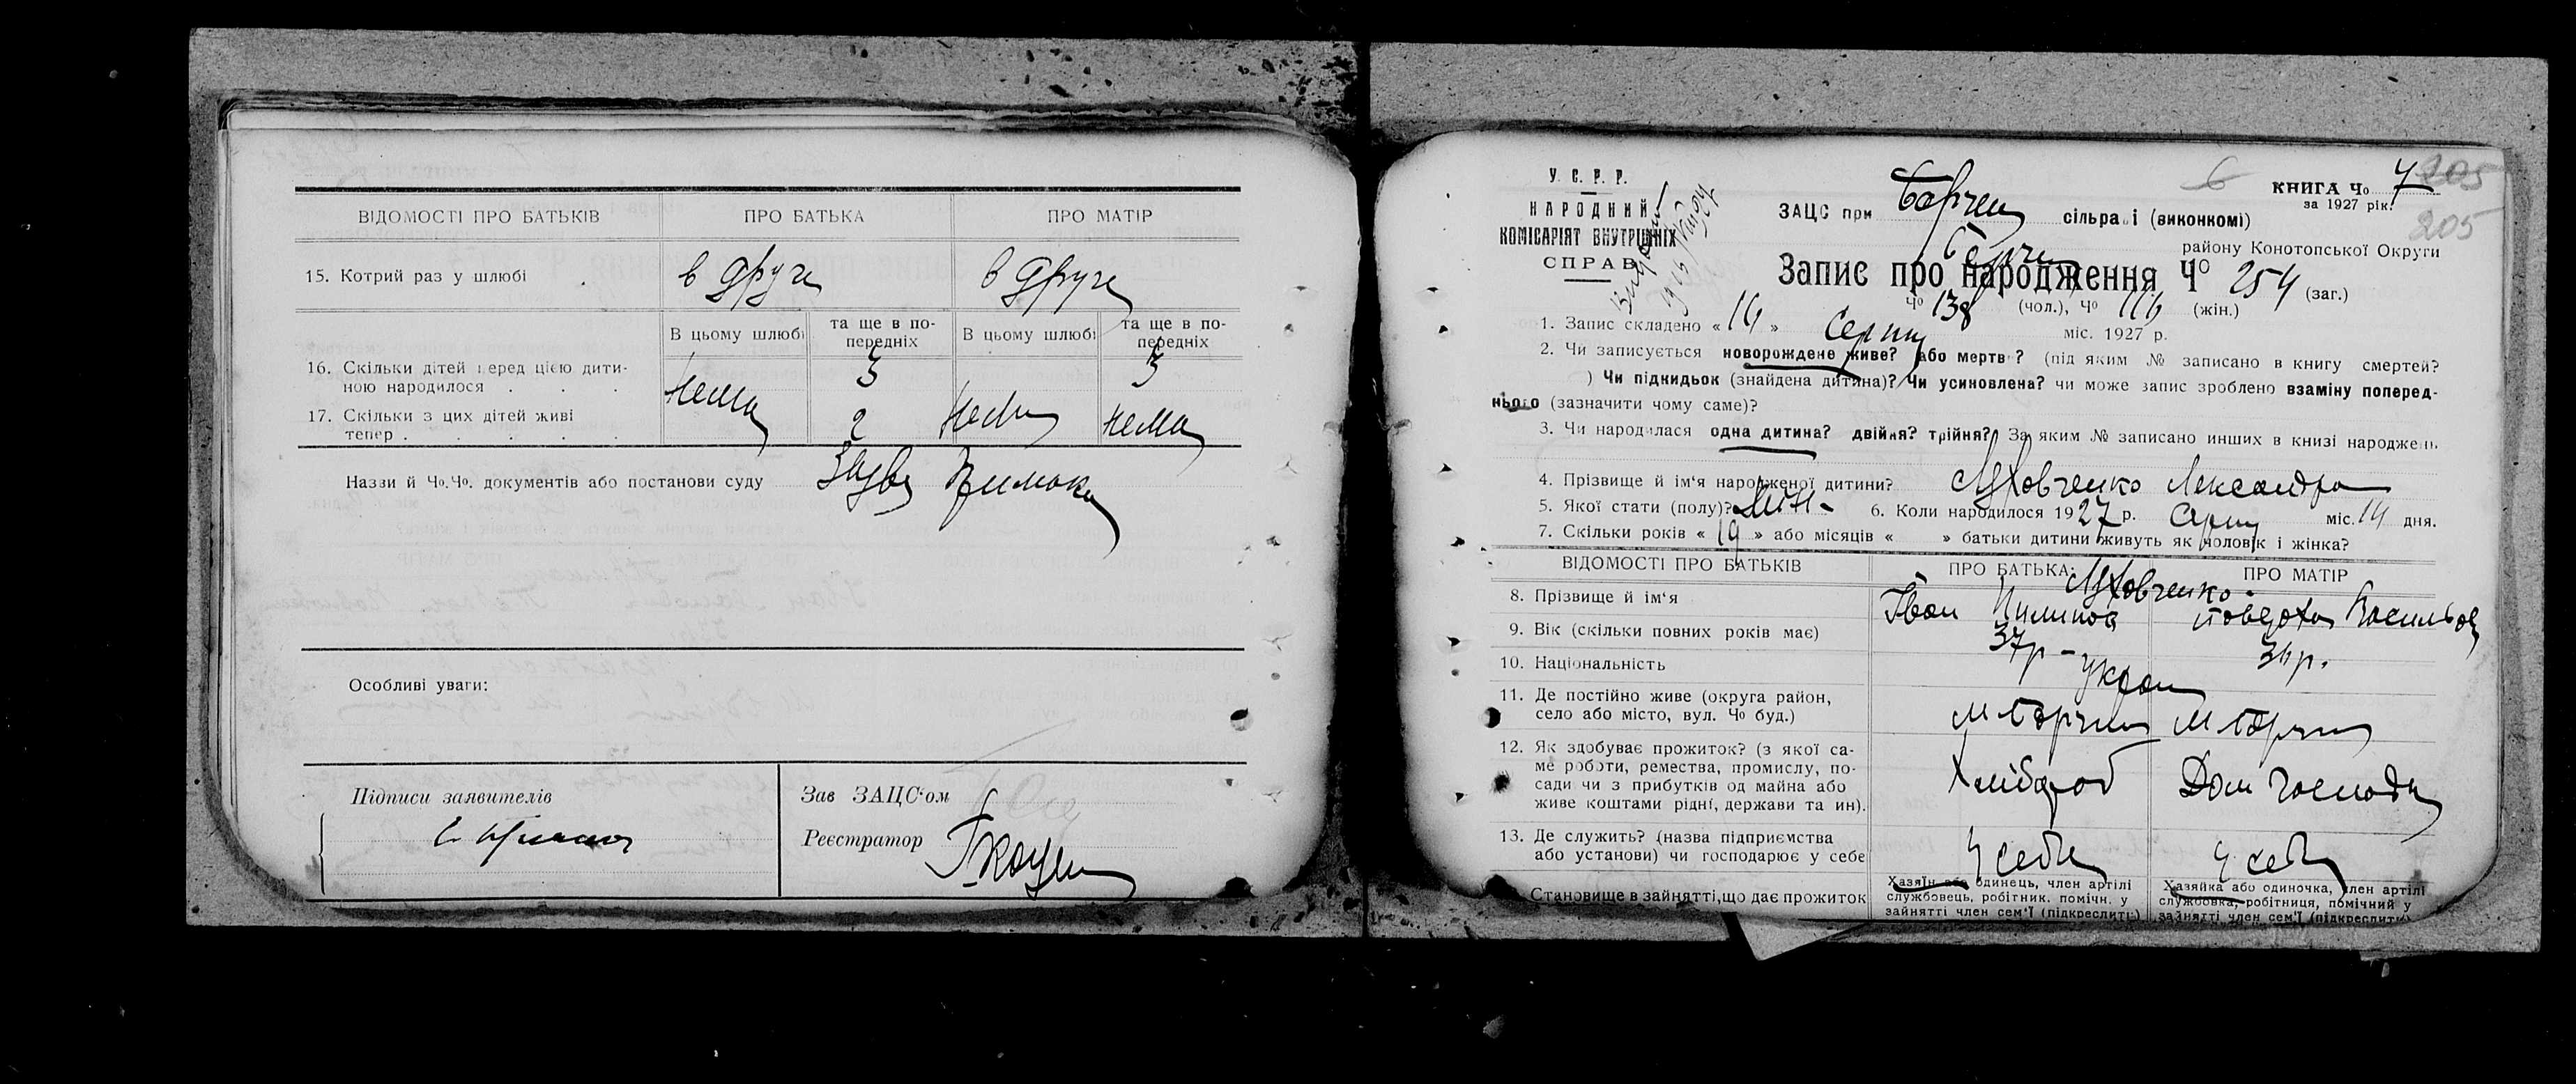 ВІДОМОСТІ ПРО БАТЬКІВ ПРО БАТЬКА ПРО МАТІР
15. Котрий раз у шлюбі . в друге в друге
В цьому шлюбі та ще в по- В цьому шлюбі та ще в по-
передніх передніх
16. Скільки дітей перед цією дити- 3 3
ною народилося . . . нема
17. Скільки з цих дітей живі 2 нема нема
тепер . . . . .
Назви й Чо.Чо. документів або постанови суду
Особливі уваги:
Підписи заявителів Зав ЗАЦС'ом
Реєстратор
У. С. Р. Р.
НАРОДНИЙ
КОМІСАРІЯТ ВНУТРІШНІХ
СПРАВ
6 КНИГА Чо 7 205
за 1927 рік.
ЗАЦС при Борзен сільраді (виконкомі) 205
району Конотопської Округи
Запис про народження Чо 254 (заг.)
Чо 138 (чол.), Чо 116 (жін.)
1. Запис складено «16» Серпн міс. 1927 р.
2. Чи записується новорождене живе? або мертве? (під яким № записано в книгу смертей?
) Чи підкидьок (знайдена дитина)? Чи усиновлена? чи може запис зроблено взаміну поперед-
нього (зазначити чому саме)?
3. Чи народилася одна дитина? двійня? трійня? За яким № записано инших в книзі народжень
4. Прізвище й ім'я народженої дитини? Александра
5. Якої стати (полу)? жін. 6. Коли народилося 1927 р. Серпн міс. 14 дня.
7. Скільки років «19» або місяців « » батьки дитини живуть як чоловік і жінка?
ВІДОМОСТІ ПРО БАТЬКІВ ПРО БАТЬКА: ПРО МАТІР
8. Прізвище й ім'я Іван Пилипов Васильов
9. Вік (скільки повних років має) 37р 36р.
10. Національність україн
11. Де постійно живе (округа район,
село або місто, вул. Чо буд.) м Борзна м Борзна
12. Як здобуває прожиток? (з якої са-
ме роботи, ремества, промислу, по- Хлібороб Дом господ
сади чи з прибутків од майна або
живе коштами рідні, держави та ин).
13. Де служить? (назва підприємства
або установи) чи господарює у себе У себе У себе
Становище в зайнятті, що дає прожиток
Хазяїн або одинець, член артілі
службовець, робітник. помічн. у
зайнятті член сем'ї (підкреслить)
Хазяйка або одиночка, член артілі
службовка, робітниця, помічний у
зайнятті член сем'ї (підкреслить)